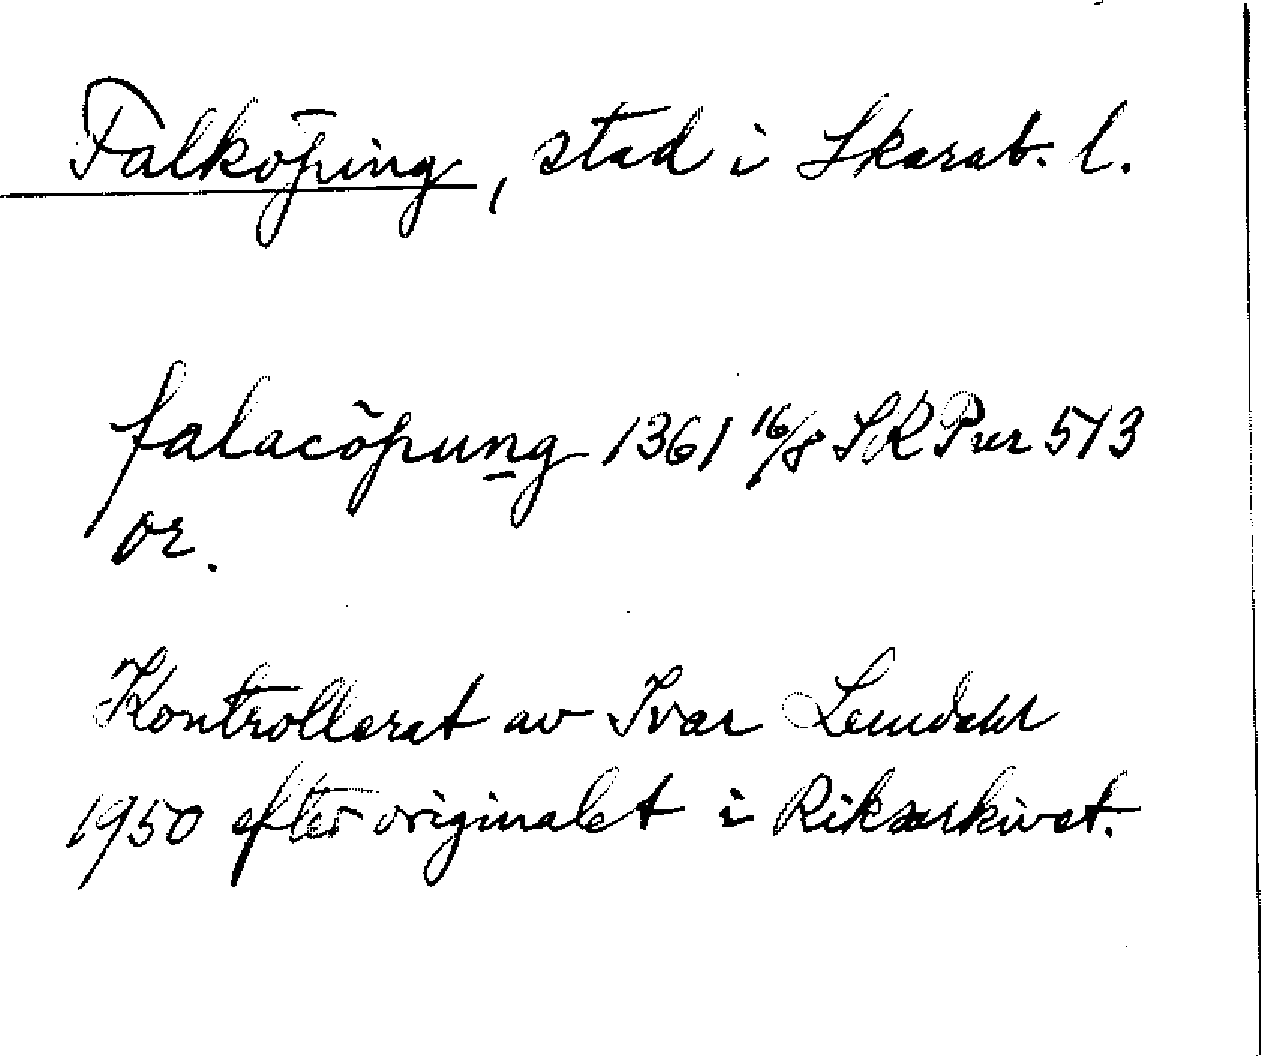 Falköping, stad i Skarab. l.
falacöpung 1361 16/8 SRPver 513
or.
Kontrollerat av Ivar Lundahl
1950 efter originalet i Riksarkivet.